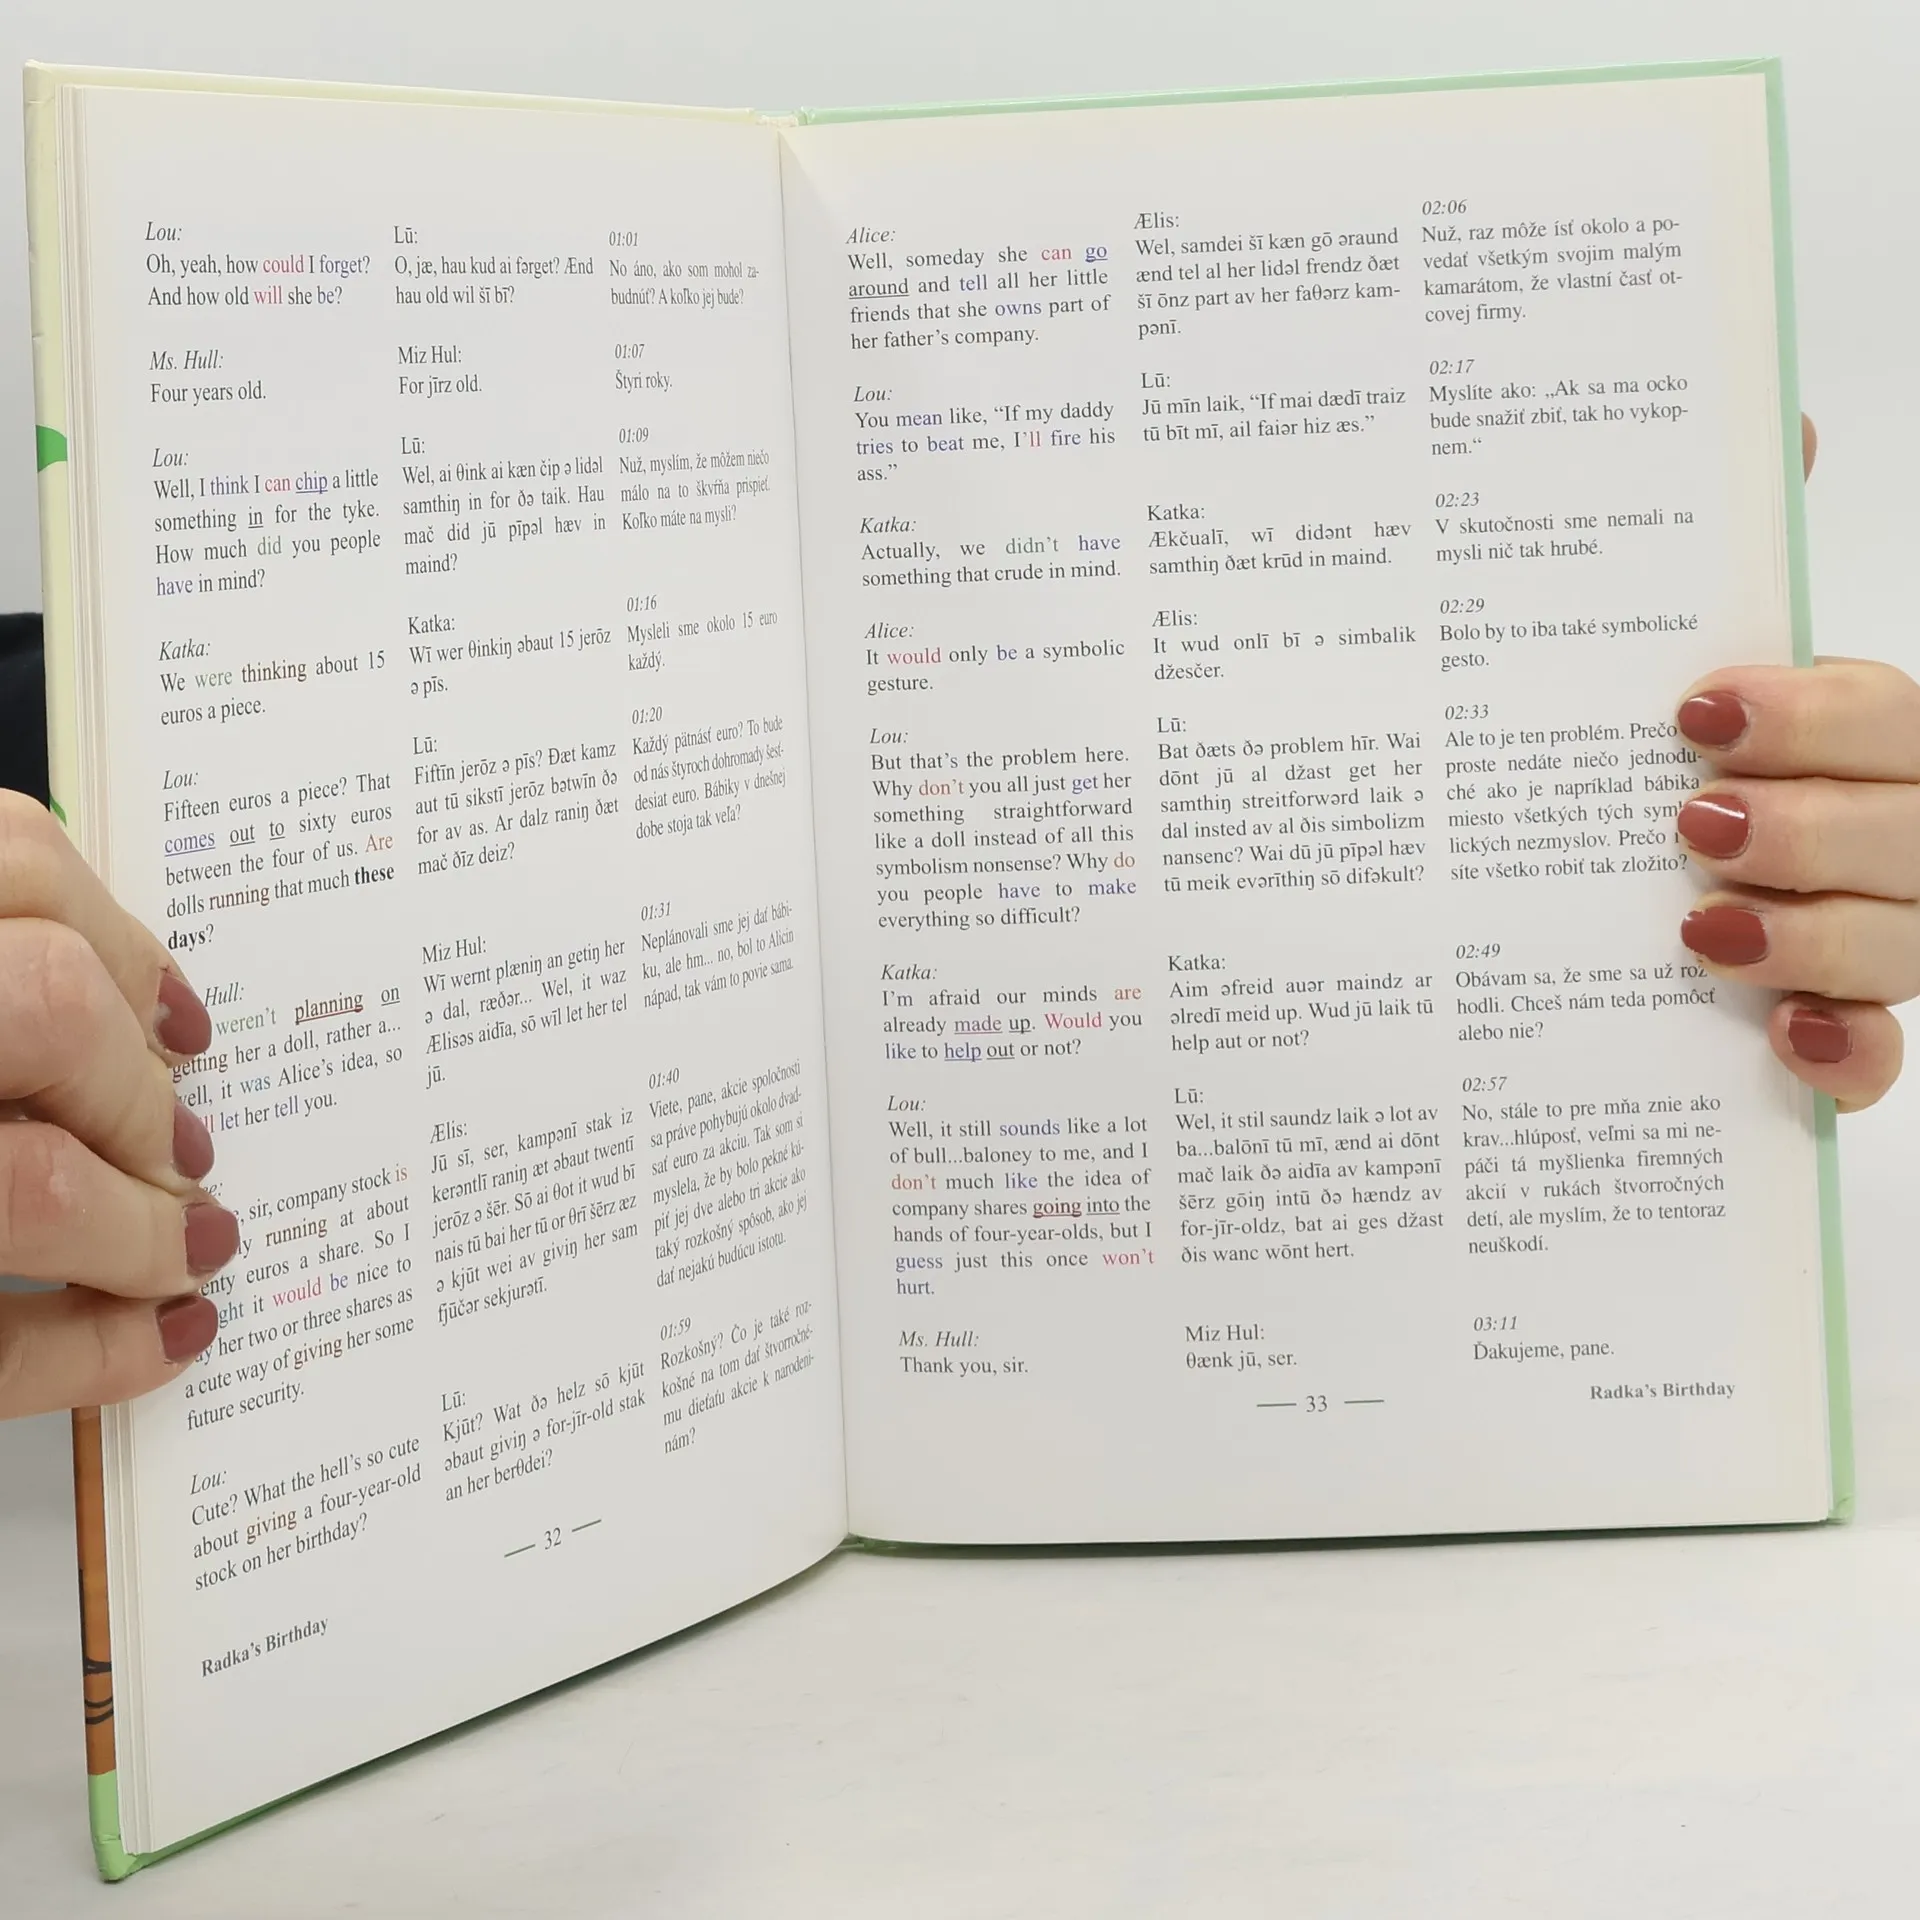 Lou:
Oh, yeah, how could I forget?
And how old will she be?
Ms. Hull:
Four years old.
Lou:
Well, I think I can chip a little
something in for the tyke.
How much did you people
have in mind?
Katka:
We were thinking about 15
euros a piece.
Lou:
Fifteen euros a piece? That
comes out to sixty euros
between the four of us. Are
dolls running that much these
days?
Hull:
weren't planning on
getting her a doll, rather a...
well, it was Alice's idea, so
let her tell you.
sir, company stock is
running at about
euros a share. So I
it would be nice to
her two or three shares as
a cute way of giving her some
future security.
Lou:
Cute? What the hell's so cute
about giving a four-year-old
stock on her birthday?
Lū:
O, jæ, hau kud ai fərget? Ænd
hau old wil šī bī?
Miz Hul:
For jīrz old.
Lū:
Wel, ai θink ai kæn čip ə lidəl
samthiŋ in for ðə taik. Hau
mač did jū pīpəl hæv in
maind?
Katka:
Wī wer θinkiŋ əbaut 15 jerōz
ə pīs.
Lū:
Fiftīn jerōz ə pīs? Ðæt kamz
aut tū sikstī jerōz bətwīn ðə
for av as. Ar dalz raniŋ ðæt
mač ðīz deiz?
Miz Hul:
Wī wernt plæniŋ an getiŋ her
ə dal, ræðər... Wel, it waz
Ælisəs aidīa, sō wīl let her tel
jū.
Ælis:
Jū sī, ser, kampənī stak iz
kerəntlī raniŋ æt əbaut twentī
jerōz ə šēr. Sō ai θot it wud bī
nais tū bai her tū or θrī šērz æz
ə kjūt wei av giviŋ her sam
fjūčər sekjurətī.
Lū:
Kjūt? Wat ðə helz sō kjūt
əbaut giviŋ ə for-jīr-old stak
an her berθdei?
01:01
No áno, ako som mohol za-
budnúť? A koľko jej bude?
01:07
Štyri roky.
01:09
Nuž, myslím, že môžem niečo
málo na to škvŕňa prispieť.
Koľko máte na mysli?
01:16
Mysleli sme okolo 15 euro
každý.
01:20
Každý pätnásť euro? To bude
od nás štyroch dohromady šesť-
desiat euro. Bábiky v dnešnej
dobe stoja tak veľa?
01:31
Neplánovali sme jej dať bábi-
ku, ale hm... no, bol to Alicin
nápad, tak vám to povie sama.
01:40
Viete, pane, akcie spoločnosti
sa práve pohybujú okolo dvad-
sať euro za akciu. Tak som si
myslela, že by bolo pekné kú-
piť jej dve alebo tri akcie ako
taký rozkošný spôsob, ako jej
dať nejakú budúcu istotu.
01:59
Rozkošný? Čo je také roz-
košné na tom dať štvorročné-
mu dieťaťu akcie k narodeni-
nám?
32
Radka's Birthday
Alice:
Well, someday she can go
around and tell all her little
friends that she owns part of
her father's company.
Lou:
You mean like, “If my daddy
tries to beat me, I'll fire his
ass.”
Katka:
Actually, we didn't have
something that crude in mind.
Alice:
It would only be a symbolic
gesture.
Lou:
But that's the problem here.
Why don't you all just get her
something straightforward
like a doll instead of all this
symbolism nonsense? Why do
you people have to make
everything so difficult?
Katka:
I'm afraid our minds are
already made up. Would you
like to help out or not?
Lou:
Well, it still sounds like a lot
of bull...baloney to me, and I
don't much like the idea of
company shares going into the
hands of four-year-olds, but I
guess just this once won't
hurt.
Ms. Hull:
Thank you, sir.
Ælis:
Wel, samdei šī kæn gō əraund
ænd tel al her lidəl frendz ðæt
šī ōnz part av her faθərz kam-
pənī.
Lū:
Jū mīn laik, “If mai dædī traiz
tū bīt mī, ail faiər hiz æs.”
Katka:
Ækčualī, wī didənt hæv
samthiŋ ðæt krūd in maind.
Ælis:
It wud onlī bī ə simbalik
džesčer.
Lū:
Bat ðæts ðə problem hīr. Wai
dōnt jū al džast get her
samthiŋ streitforwərd laik ə
dal insted av al ðis simbolizm
nansenc? Wai dū jū pīpəl hæv
tū meik evərīthiŋ sō difəkult?
Katka:
Aim əfreid auər maindz ar
əlredī meid up. Wud jū laik tū
help aut or not?
Lū:
Wel, it stil saundz laik ə lot av
ba...balōnī tū mī, ænd ai dōnt
mač laik ðə aidīa av kampənī
šērz gōiŋ intū ðə hændz av
for-jīr-oldz, bat ai ges džast
ðis wanc wōnt hert.
Miz Hul:
θænk jū, ser.
02:06
Nuž, raz môže ísť okolo a po-
vedať všetkým svojim malým
kamarátom, že vlastní časť ot-
covej firmy.
02:17
Myslíte ako: „Ak sa ma ocko
bude snažiť zbiť, tak ho vykop-
nem.“
02:23
V skutočnosti sme nemali na
mysli nič tak hrubé.
02:29
Bolo by to iba také symbolické
gesto.
02:33
Ale to je ten problém. Prečo
proste nedáte niečo jednodu-
ché ako je napríklad bábika
miesto všetkých tých
lických nezmyslov. Prečo
síte všetko robiť tak zložito?
02:49
Obávam sa, že sme sa už roz
hodli. Chceš nám teda pomôcť
alebo nie?
02:57
No, stále to pre mňa znie ako
krav...hlúposť, veľmi sa mi ne-
páči tá myšlienka firemných
akcií v rukách štvorročných
detí, ale myslím, že to tentoraz
neuškodí.
03:11
Ďakujeme, pane.
33
Radka's Birthday